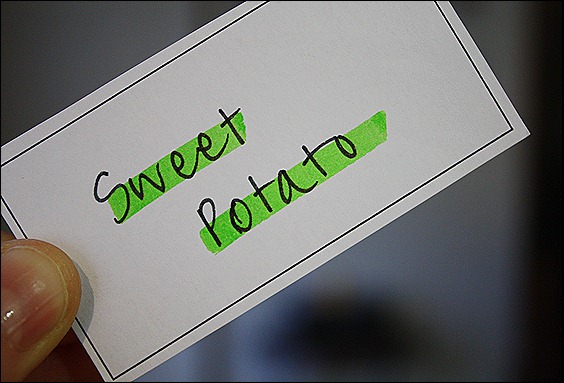 Sweet
Potato